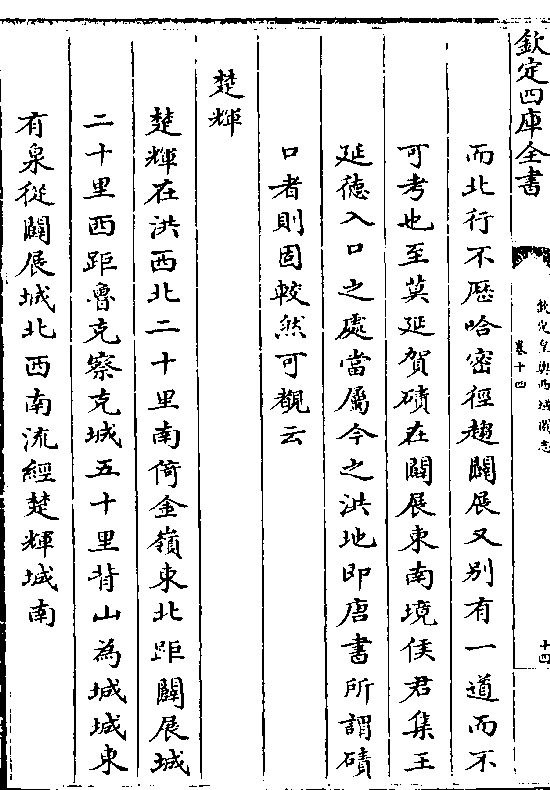 欽定四庫全書
欽定皇輿西域圖志
卷十四
十四
而北行不歴哈密徑趨闢展又别有一道而不
可考也至莫延賀磧在闢展東南境侯君集王
延徳入口之處當屬今之洪地即唐書所謂磧
口者則固較然可覩云
楚輝
楚輝在洪西北二十里南倚金嶺東北距闢展城
二十里西距魯克察克城五十里背山為城城東
有泉從闢展城北西南流經楚輝城南